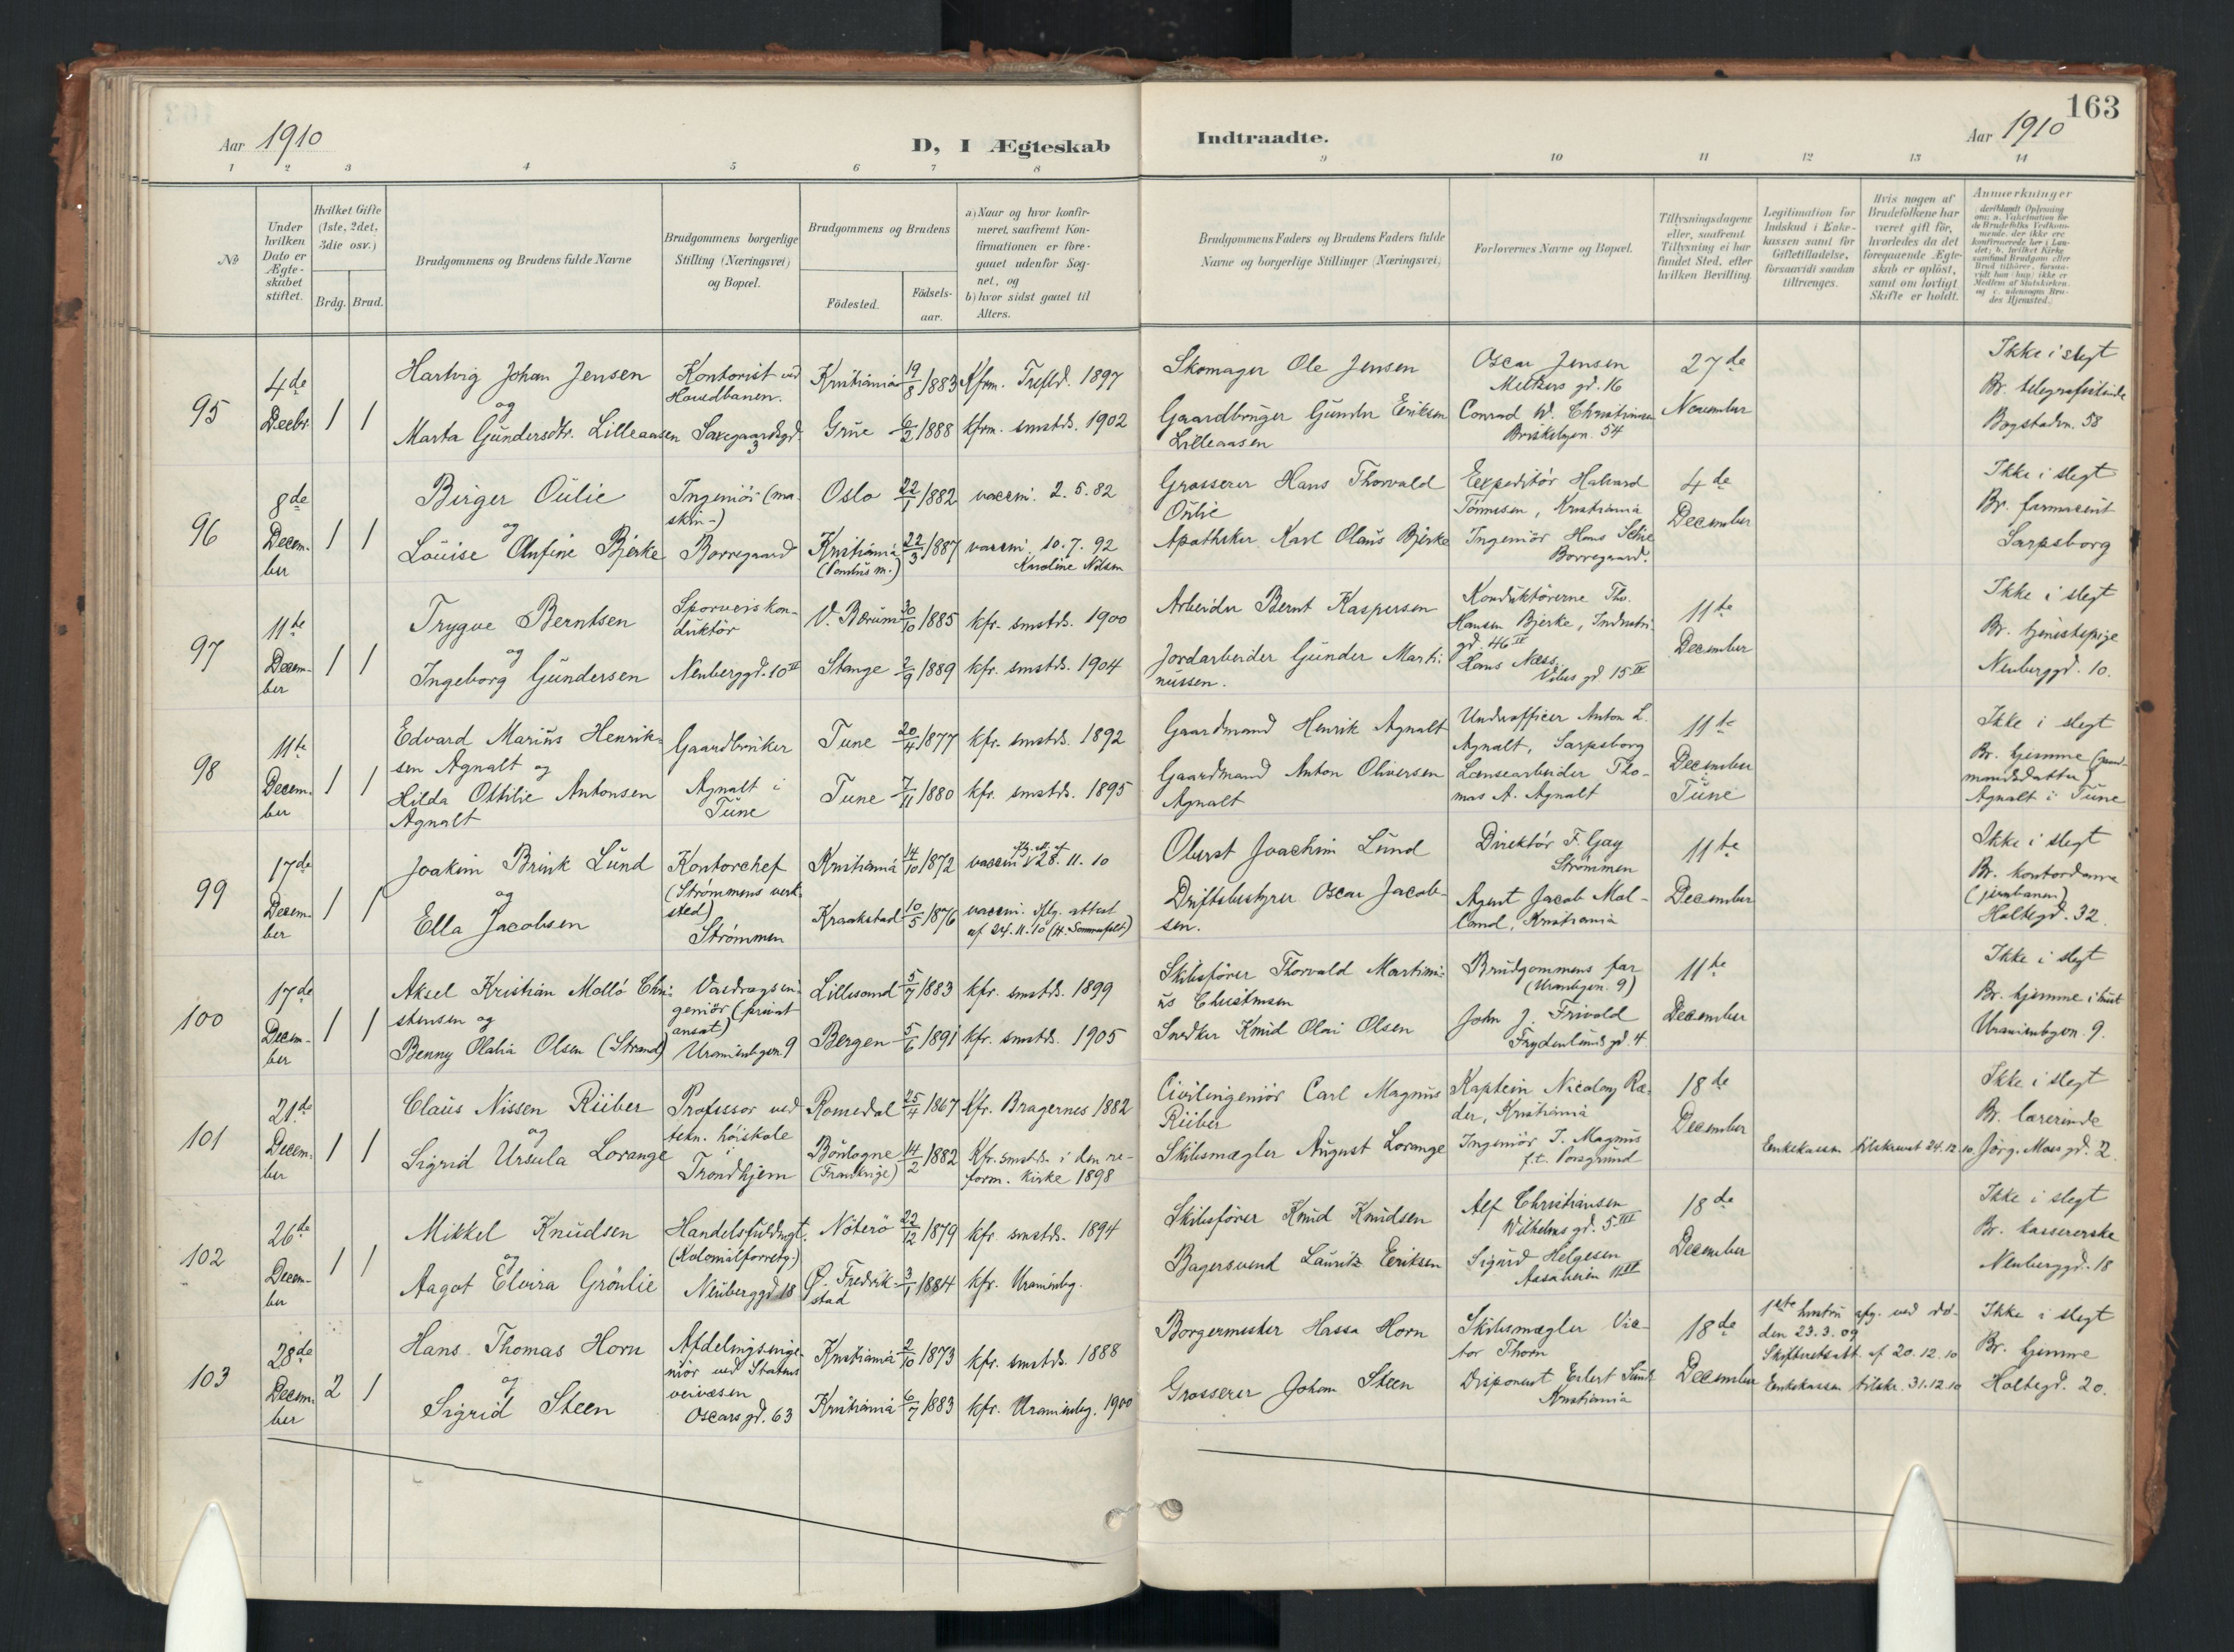 163
Aar 1910
D, I Ægteskab
Indtraadte.
Aar 1910
1 2 3 4 5 6 7 8 9 10 11 12 13 14
No
Under hvilken Dato er Ægteskabet stiftet.
Hvilket Gifte (1ste, 2det, 3die osv.)
Brdg. Brud.
Brudgommens og Brudens fulde Navne
Brudgommens borgerlige Stilling (Næringsvei) og Bopæl.
Brudgommens og Brudens
Födested.
Födsels-aar.
a) Naar og hvor konfir-
meret, saafremt Kon-
firmationen er fore-
gaaet udenfor Sog-
net, og
b) hvor sidst gaaet til
Alters.
Brudgommens Faders og Brudens Faders fulde
Navne og borgerlige Stillinger (Næringsvei)
Forlovernes Navne og Bopæl.
Tillysningsdagene
eller, saafremt
Tillysning ei har
fundet Sted, efter
hvilken Bevilling.
Legitimation for
Indskud i Enke-
kassen samt for
Giftetilladelse,
forsaavidt saadan
tiltrænges.
Hvis nogen af
Brudefolkene har
været gift för,
hvorledes da det
foregaaende Ægte-
skab er oplöst,
samt om lovligt
Skifte er holdt.
Anmærkninger
95
4de
Decbr.
1 1
Hartvig Johan Jensen
og
Marta Gundersdtr. Lilleaasen
Kontorist ved
Hovedbanen.
Saxegaardsgd.
3
Kristiania 19/8 1883 Kfrm. Trefld. 1897
Grue 6/2 1888 kfrm. smstds. 1902
Skomager Ole Jensen
Gaardbruger Gunder Eriksen
Lilleaasen
Oscar Jensen
Meltzers gd. 16
Conrad W. Christiansen
Briskebyen. 54
27de
November
Ikke i slegt
Br. telegrafistinde
Bogstadvn. 58
96
8de
Decem-
ber
1 1
Birger Oulie
og
Louise Olufine Bjerke
Ingeniör (ma-
skin-)
Borregaard
Oslo 22/1 1882 vaccin. 2.5.82
Kristiania 22/3 1887 vaccin. 10.7.92
Karoline Nilsen
Grosserer Hans Thorvald
Oulie
Apotheker Karl Olaus Bjerke
Expeditör Halvard
Tönnesen, Kristiania
Ingeniör Hans
Borregaard.
4de
December
Ikke i slegt
Br. farmaceut
Sarpsborg
97
11te
Decem-
ber
1 1
Trygve Berntsen
og
Ingeborg Gundersen
Sporveiskon-
duktör
Neuberggd. 10 II
V. Bærum 30/10 1885 kfr. smstds. 1900
Stange 2/9 1889 kfr. smstds. 1904
Arbeider Bernt Kaspersen
Jordarbeider Gunder Marti-
nussen.
Konduktörerne Tho.
Hansen Bjerke, Industri-
gd. 46 IV
Hans Næss,
Vibes gd 15 IV
11te
December
Ikke i slegt
Br. tjenestepige
Neuberggd. 10.
98
11te
Decem-
ber
1 1
Edvard Marius Henrik-
sen Agnalt og
Hilda Ottilie Antonsen
Agnalt
Gaardbruker
Agnalt i
Tune
Tune 20/4 1877 kfr. smstds. 1892
Tune 7/11 1880 kfr. smstds. 1895
Gaardmand Henrik Agnalt
Gaardmand Anton Oliversen
Agnalt
Underofficer Anton L.
Agnalt, Sarpsborg
Lænsearbeider Tho-
mas A. Agnalt
11te
December
Tune
Ikke i slegt
Br. hjemme (gaard-
mandsdatter)
Agnalt i Tune
99
17de
Decem-
ber
1 1
Joakim Brink Lund
og
Ella Jacobsen
Kontorchef
(Strömmens verk-
sted)
Strömmen
Kristiania 14/10 1872 vaccin. 28.11.10
Kraakstad 10/5 1876 vaccin. iflg. attest
af 24.11.10 (H. Sommerfelt)
Oberst Joachim Lund
Driftsbestyrer Oscar Jacob-
sen.
Direktör F. Gay
Strömmen
Agent Jacob Mal-
land, Kristiania
11te
December
Ikke i slegt
Br. kontordame
(jernbanen)
Holtegd. 32
100
17de
Decem-
ber
1 1
Aksel Kristian Mollö Chri-
stensen og
Benny Olalia Olsen (Strand)
Vasdragsin-
geniör (privat
ansat)
Uranienbgvn. 9
Lillesand 5/7 1883 kfr. smstds. 1899
Bergen 5/6 1891 kfr. smstds. 1905
Skibsförer Thorvald Martini-
us Christensen
Snedker Knud Olai Olsen
Brudgommens far
(Uranbgvn. 9)
John J. Frivold
Frydenlunds gd. 4.
11te
December
Ikke i slegt
Br. hjemme i huset
Uranienbgvn. 9.
101
21de
Decem-
ber
1 1
Claus Nissen Riiber
og
Sigrid Ursula Lorange
Professor ved
tekn. höiskole
i
Trondhjem
Romedal 25/4 1867 Kfr. Bragernes 1882
Boulogne
(Frankrige) 14/2 1882 Kfr. smstds. i den re-
form. kirke 1898
Civilingeniör Carl Magnus
Riiber
Skibsmægler August Lorange
Kaptein Nicolay Ræ-
der, Kristiania
Ingeniör J. Magnus
f.t. Porsgrund
18de
December
Enkekassen tilskrevet 24.12.10
Ikke i slegt
Br. lærerinde
Jörg. Moes gd. 2.
102
26de
Decem-
ber
1 1
Mikkel Knudsen
og
Aagot Elvira Grönlie
Handelsfuldmgt.
(Kolonialforretg.)
Neuberggd 18
Nöterö 22/12 1879 kfr. smstds. 1894
Ø. Fredrik-
stad 3/1 1884 kfr. Uranienbg.
Skibsförer Knud Knudsen
Bagersvend Lauritz Eriksen
Alf Christiansen
Wilhelms gd. 5 III
Sigurd Helgesen
Aasaveien 11 IV
18de
December
Ikke i slegt
Br. kassererske
Neuberggd. 18
103
28de
Decem-
ber
2 1
Hans Thomas Horn
og
Sigrid Steen
Afdelingsinge-
niör ved Statens
veivæsen
Oscars gd. 63
Kristiania 2/10 1873 kfr. smstds. 1888
Kristiania 6/7 1883 kfr. Uranienbg. 1900
Borgermester Hassa Horn
Grosserer Johan Steen
Skibsmægler Vic-
tor Thorn
Disponent Eilert Sundt
Kristiania
18de
December
1ste hustru afg. ved dö-
den 23.3.09
Skifteretsatt. af 20.12.10
Enkekassen tilskr. 31.12.10
Ikke i slegt
Br. hjemme
Holtegd. 20.